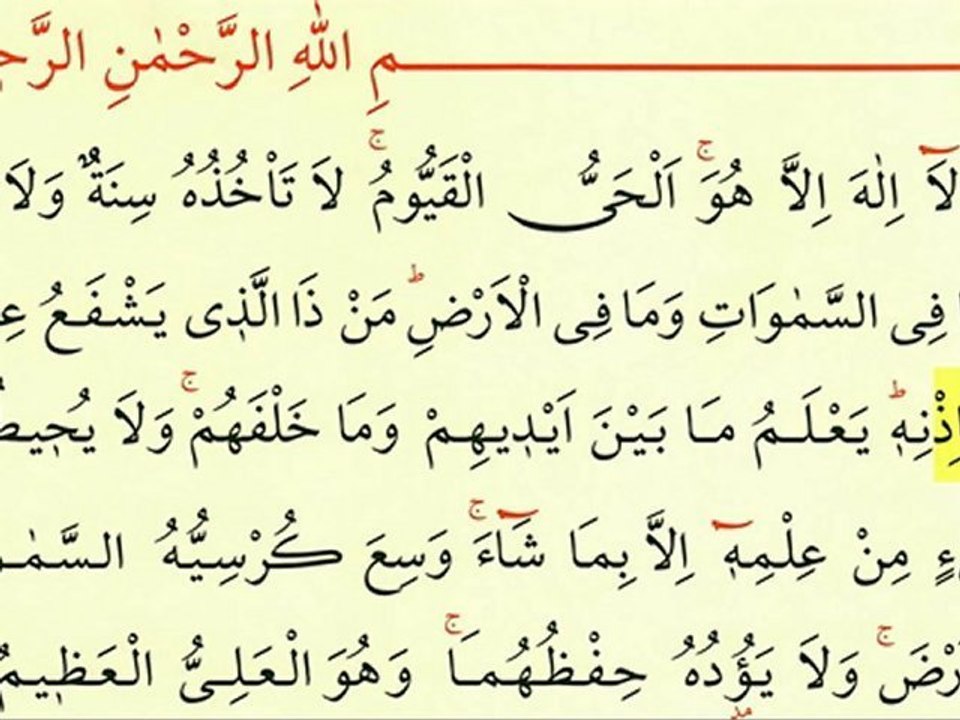 مِ اللّٰهِ الرَّحْمٰنِ الرَّح
لَٓا اِلٰهَ اِلَّا هُوَۚ اَلْحَىُّ الْقَيُّومُۚ لَا تَاْخُذُهُ سِنَةٌ وَلَا
فِى السَّمٰوَاتِ وَمَا فِى الْاَرْضِؕ مَنْ ذَا الَّذٖى يَشْفَعُ عِ
اِذْنِهٖؕ يَعْلَمُ مَا بَيْنَ اَيْدٖيهِمْ وَمَا خَلْفَهُمْۚ وَلَا يُحٖيط
ءٍ مِنْ عِلْمِهٖٓ اِلَّا بِمَا شَٓاءَۚ وَسِعَ كُرْسِيُّهُ السَّمٰو
رْضَۚ وَلَا يَؤُدُهُ حِفْظُهُمَاۚ وَهُوَ الْعَلِىُّ الْعَظٖيمُ